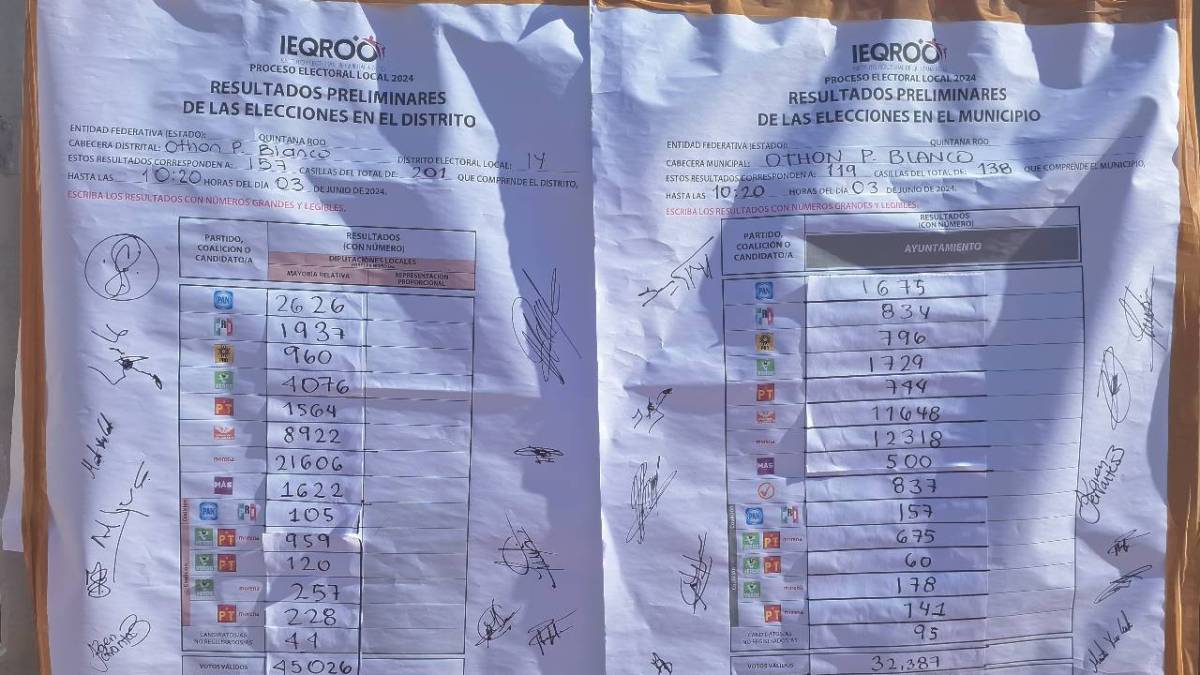 IEQROO
PROCESO ELECTORAL LOCAL 2024
RESULTADOS PRELIMINARES
DE LAS ELECCIONES EN EL DISTRITO
ENTIDAD FEDERATIVA (ESTADO): QUINTANA ROO
CABECERA DISTRITAL: Othon P. Blanco DISTRITO ELECTORAL LOCAL: 14
ESTOS RESULTADOS CORRESPONDEN A: 157 CASILLAS DEL TOTAL DE 201 QUE COMPRENDE EL DISTRITO,
HASTA LAS 10:20 HORAS DEL DÍA 03 DE JUNIO DE 2024.
ESCRIBA LOS RESULTADOS CON NÚMEROS GRANDES Y LEGIBLES.
PARTIDO, COALICIÓN O CANDIDATO/A
RESULTADOS
(CON NÚMERO)
DIPUTACIONES LOCALES
MAYORÍA RELATIVA REPRESENTACIÓN PROPORCIONAL
PAN 2626
PRI 1937
PRD 960
VERDE 4076
PT 1564
8922
morena 21606
MAS 1622
PAN PRI 105
VERDE PT morena 959
VERDE PT 120
VERDE morena 257
PT morena 228
CANDIDATOS/AS NO REGISTRADOS/AS 44
VOTOS VÁLIDOS 45026
IEQROO
PROCESO ELECTORAL LOCAL 2024
RESULTADOS PRELIMINARES
DE LAS ELECCIONES EN EL MUNICIPIO
ENTIDAD FEDERATIVA (ESTADO): QUINTANA ROO
CABECERA MUNICIPAL: OTHON P. BLANCO
ESTOS RESULTADOS CORRESPONDEN A: 119 CASILLAS DEL TOTAL DE 138 QUE COMPRENDE EL MUNICIPIO,
HASTA LAS 10:20 HORAS DEL DÍA 03 DE JUNIO DE 2024.
ESCRIBA LOS RESULTADOS CON NÚMEROS GRANDES Y LEGIBLES.
PARTIDO, COALICIÓN O CANDIDATO/A
RESULTADOS
(CON NÚMERO)
AYUNTAMIENTO
PAN 1675
PRI 834
PRD 796
VERDE 1729
PT 744
11648
morena 12318
MAS 500
837
PAN PRI 157
VERDE PT morena 675
VERDE PT 60
VERDE morena 178
PT morena 141
CANDIDATOS/AS NO REGISTRADOS/AS 95
VOTOS VÁLIDOS 32,387